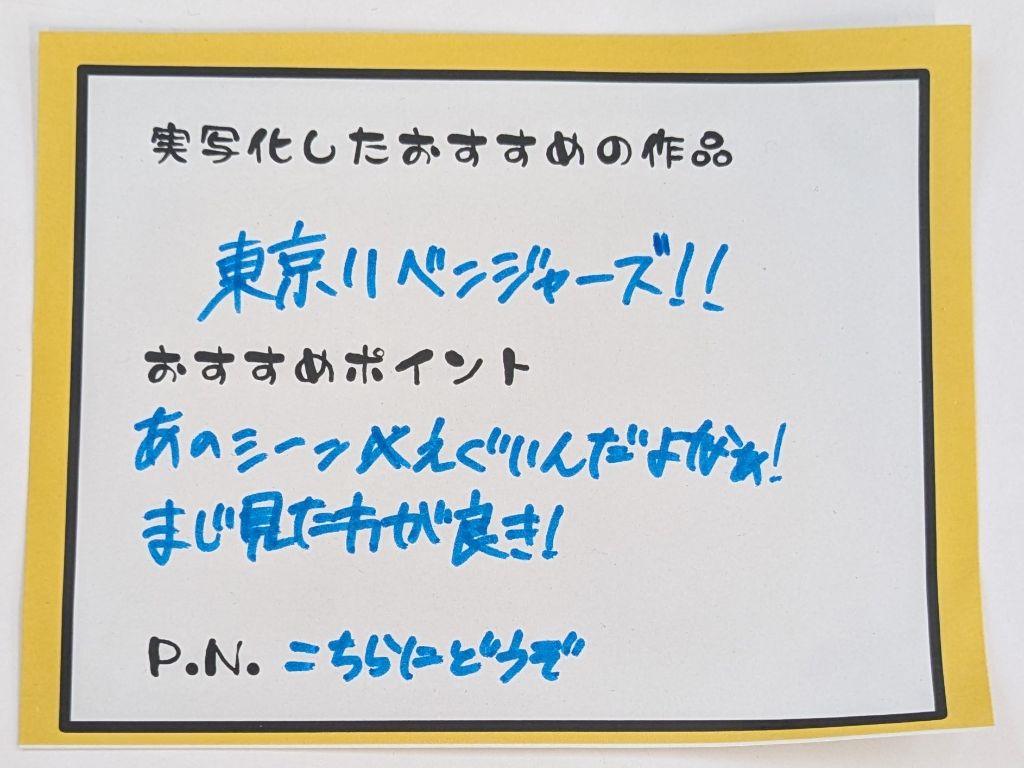 実写化したおすすめの作品
東京リベンジャーズ!!
おすすめポイント
あのシーン えぐいんだよなぁ!
まじ見た方が良き!
P.N. こちらにどうぞ